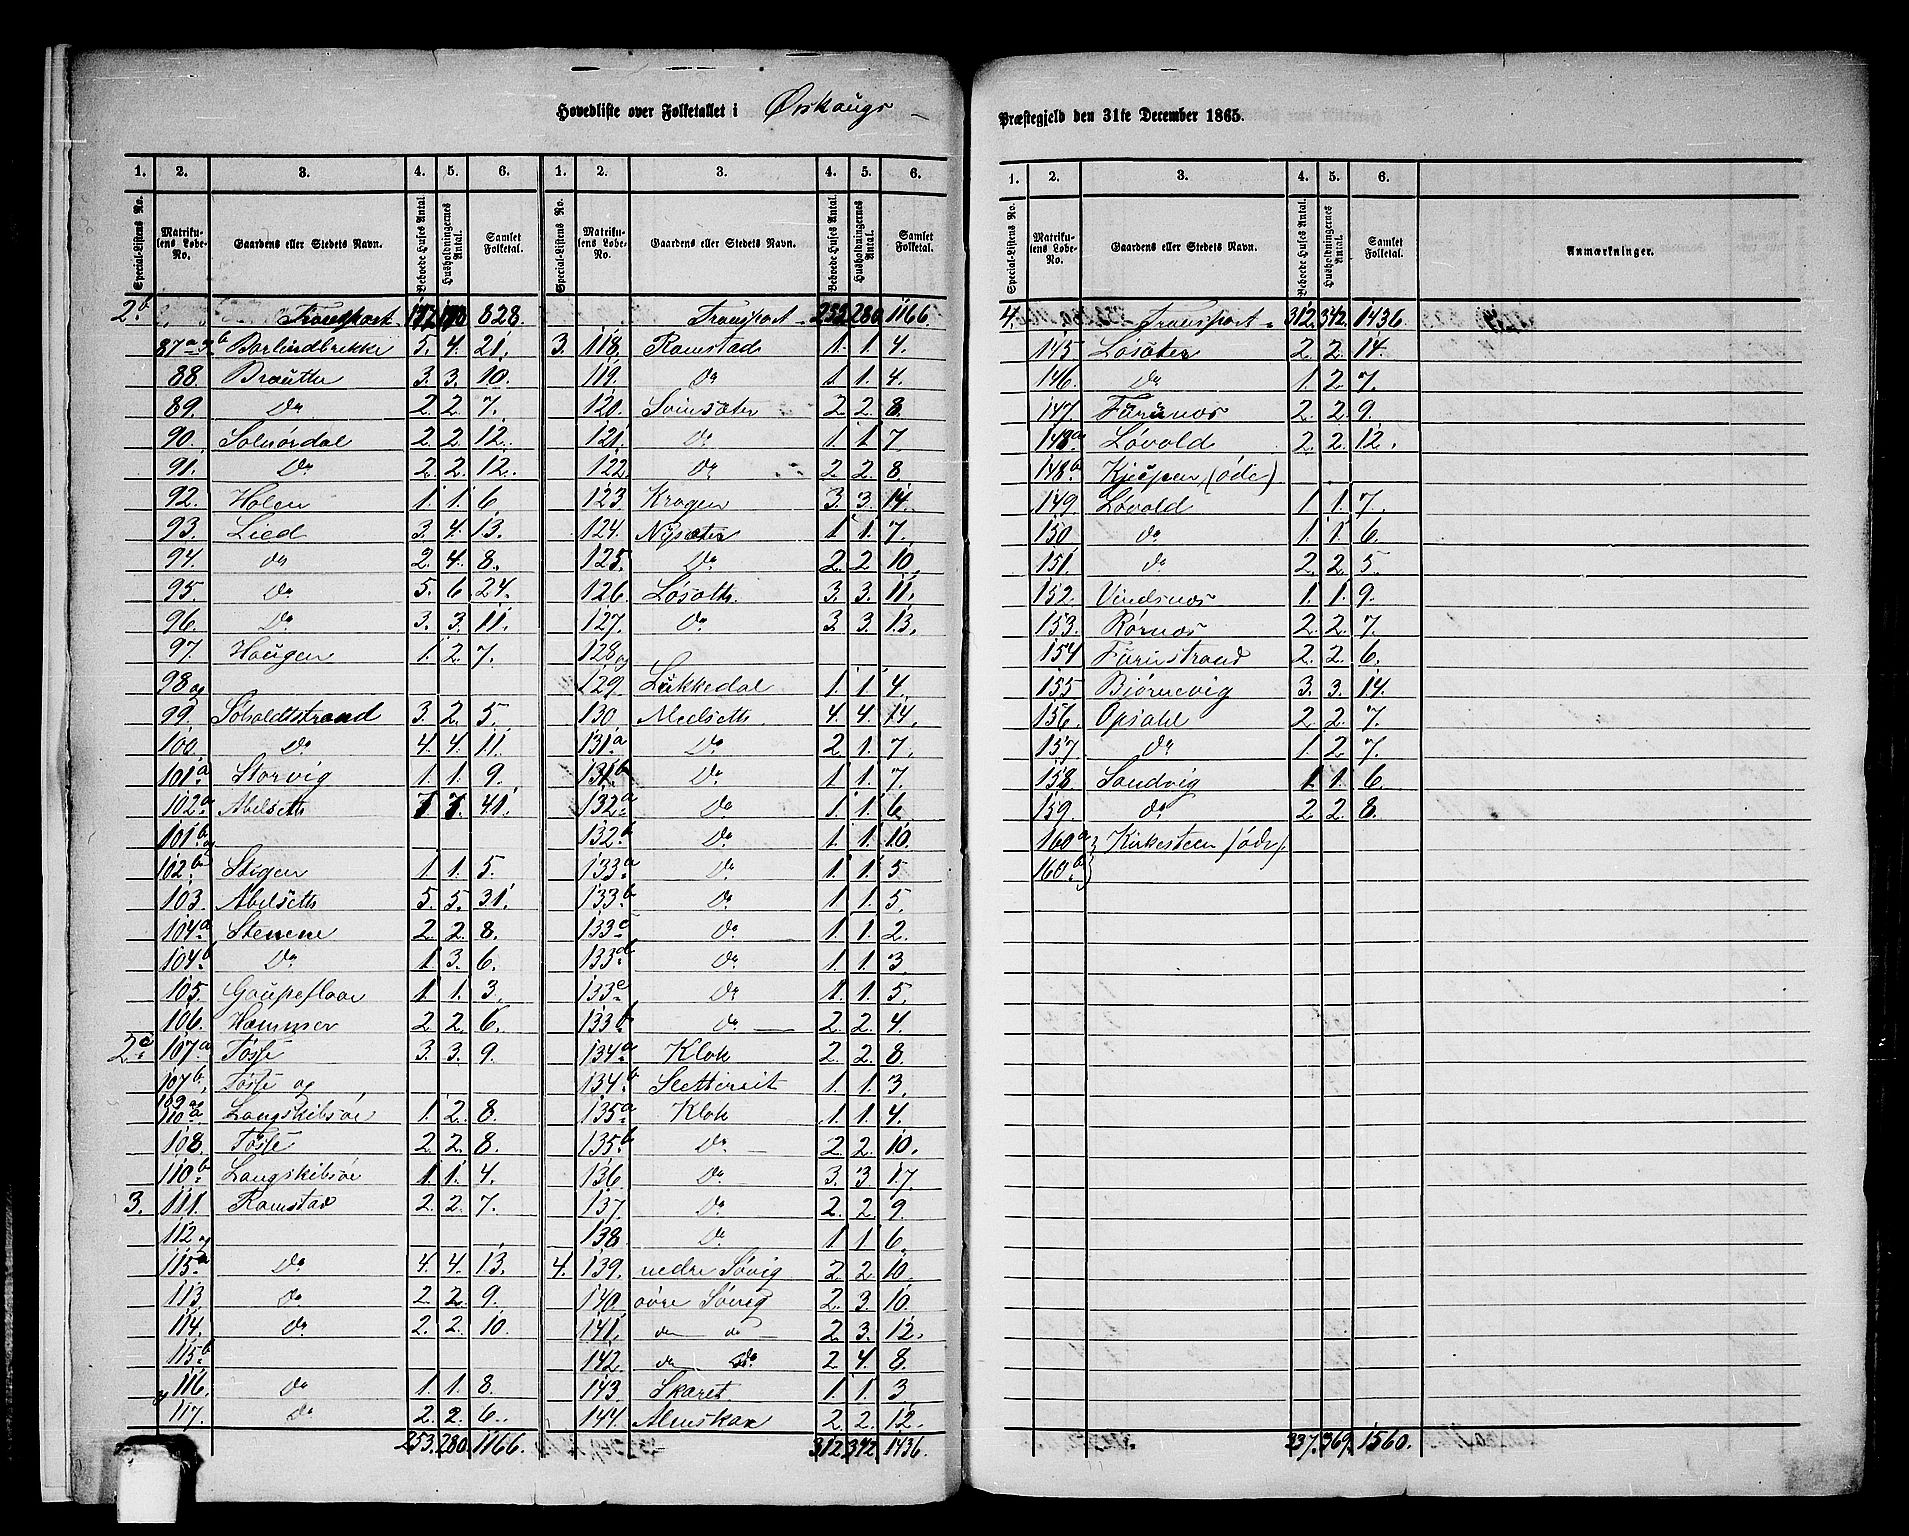 Hovedliste over Folketallet i Ørskougs
Præstegjeld den 31te December 1865.
1. 2. 3. 4. 5. 6. 1. 2. 3. 4. 5. 6.
Special-Listens No. Matrikulens Løbe-No. Gaardens eller Stedets Navn. Beboede Huses Antal. Husholdningernes Antal. Samlet Folketal. Special-Listens No. Matrikulens Løbe-No. Gaardens eller Stedets Navn. Beboede Huses Antal. Husholdningernes Antal. Samlet Folketal.
2b Transport 828.
Borlindbrekke 5. 4. 21.
88. Brautte 3. 3. 10.
89. Do 2. 2. 7.
90. Solnørdal 2. 2. 12.
91. Do 2. 2. 12.
92. Holen 1. 1. 6
93. Lied 3. 4. 13.
94. do 2. 4. 8.
95. Do 5. 6 24.
96. Do 3. 3. 11.
97. Haugen 1. 2. 7.
98 og
99. Søholdtstrand 3. 2. 5.
100. Do 4. 4. 11.
101a Storvig 1. 1. 9.
102a Abelseth 7. 7. 41.
101b og
102b Stigen 1. 1. 5.
103. Abelseth 5. 5. 31.
104a Stenene 2. 2. 8.
104b Do 1. 3. 6.
105. Goupefloae 1. 1. 3.
106. Hammer 2. 2. 6.
2c 107a Tøsse 3. 3. 9.
107b Tøsse og
109 og 110a Langskibsøe 1. 2. 8.
108. Tøsse 2. 2. 8.
110b Langskibsøe 1. 1. 4.
3. 111. Ramstad 2. 2. 7.
112 og
115a Do 4. 4. 13.
113 do 2. 2. 9.
114. do 2. 2. 10.
115b
116. do 1. 1. 8.
117. do 2. 2. 6.
253. 280. 1166.
Transport 280 1166.
3. 118. Ramstad 1. 1. 4.
119. Do 1. 1. 4.
120. Svinsæter 2. 2. 8.
121. Do 1 1 7
122 do 2. 2. 8.
123. Kragen 3. 3. 14.
124. Nysæter 1 1. 7.
125. Do 2. 2 10.
126. Løseth 3. 3. 11.
127. Do 3. 3. 13.
128 og
129. Lukkedal 1. 1. 4.
130. Medseth 4. 4. 14.
131a Do 2. 1. 7.
131b Do 1 1. 7.
132a Do 1 1. 6
132b Do 1. 1. 10.
133a Do 1. 1. 5
133b Do 1 1. 5.
133c Do 1. 1. 2.
133d Do 1. 1. 3
133e Do 1. 1. 5.
Do 2. 2. 4.
134a Klok 2. 2. 8.
134b Slettereit 1. 1. 3
135a Klok 1. 1. 4.
135b Do 2. 2. 10.
136 Do 3. 3. 17.
137. Do 2. 2. 9.
138 Do 1 1 6
4. 139. nedre Søvig 2. 2 10.
140. øvre Søvig 2. 3. 10.
141. do do 2. 3. 12.
142. do do 2. 4. 8.
143. Skaret 1. 1. 3
144. Almskar 2. 2. 12.
312. 342. 1436.
1. 2. 3. 4. 5. 6.
Special-Listens No. Matrikulens Løbe-No. Gaardens eller Stedets Navn. Beboede Huses Antal. Husholdningernes Antal. Samlet Folketal. Anmærkninger.
4. Transport 312. 342. 1436
145 Løsæter 2. 2. 14.
146. Do 1. 2. 7.
147. Furunæs 2. 2. 9.
148a Løvold 2. 2. 12.
148b Kjeipen (øde)
149. Løvold 1 1. 7.
150 do 1. 1. 6.
151. do 2. 2. 5.
152. Vindsnæs 1. 1. 9.
153. Rørnæs 2. 2. 7.
154 Furustrand 2. 2. 6.
155 Bjørnevig 3. 3. 14.
156. Opsahl 2. 2. 7.
157. Do 1. 2. 7.
158 Sandvig 1 1. 6
159. do 2. 2. 8.
160a } Kirkesteen (øde)
160b
337. 369. 1560.